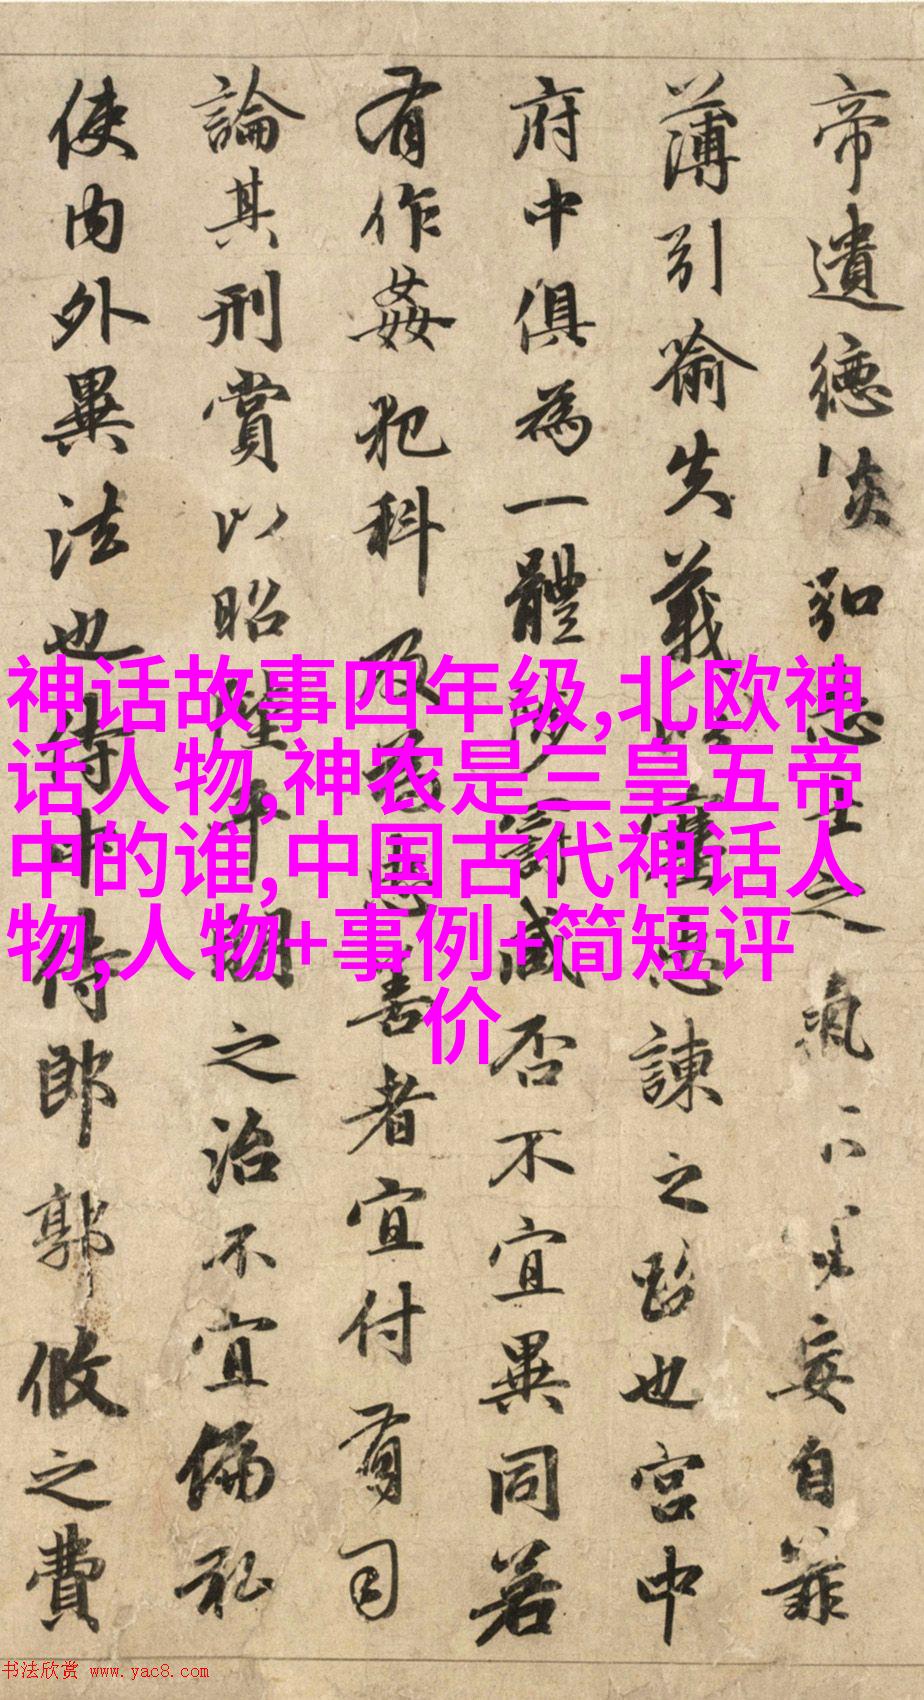 帝遺德恢弘志士之氣不宜妄自菲
薄引喻失義以塞忠諫之路也宮中
府中俱為一體陟罰臧否不宜異同若
有作姦犯科及為忠善者宜付有司
論其刑賞以昭陛平明之治不宜偏私
使內外異法也侍中侍郎郭攸之費
神话故事四年级,北欧神
话人物,神农是三皇五帝
中的谁,中国古代神话人
物,人物+事例+简短评
价
书法欣赏 www.yac8.com